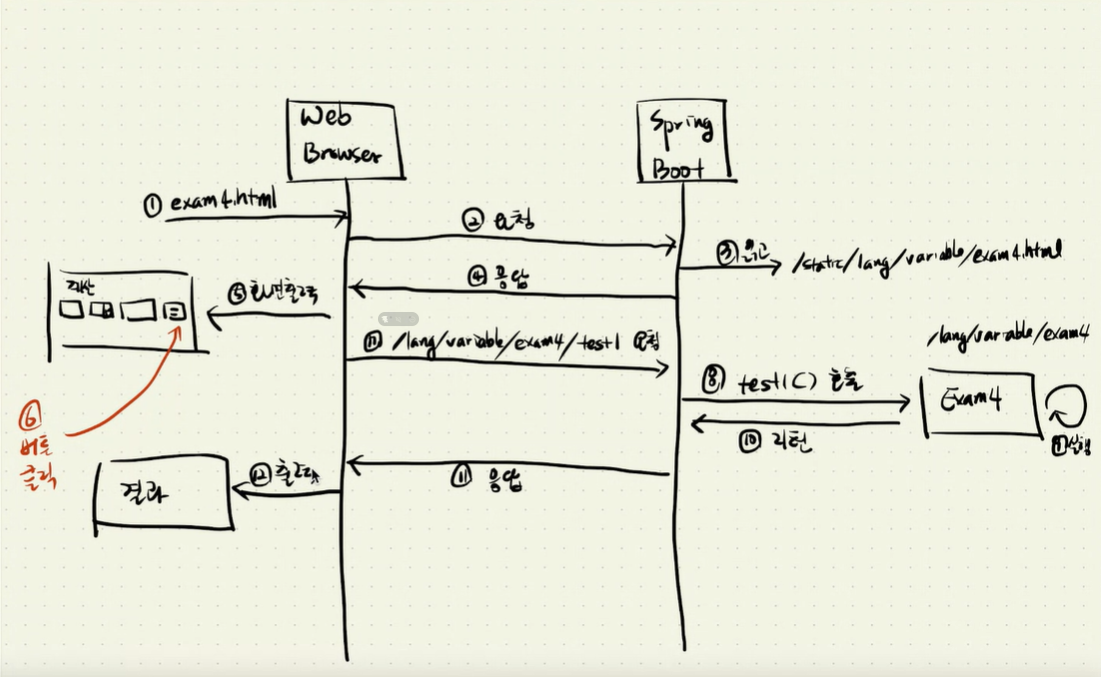 Web
Browser
Spring
Boot
① exam4.html
② 요청
③ 읽고
/static/lang/variable/exam4.html
④ 응답
⑤ 화면출력
계산
=
⑥
버튼
클릭
/lang/variable/exam4/test1 요청
/lang/variable/exam4
⑧ test1() 호출
Exam4
⑨ 실행
⑩ 리턴
⑪ 응답
⑫ 출력
결과